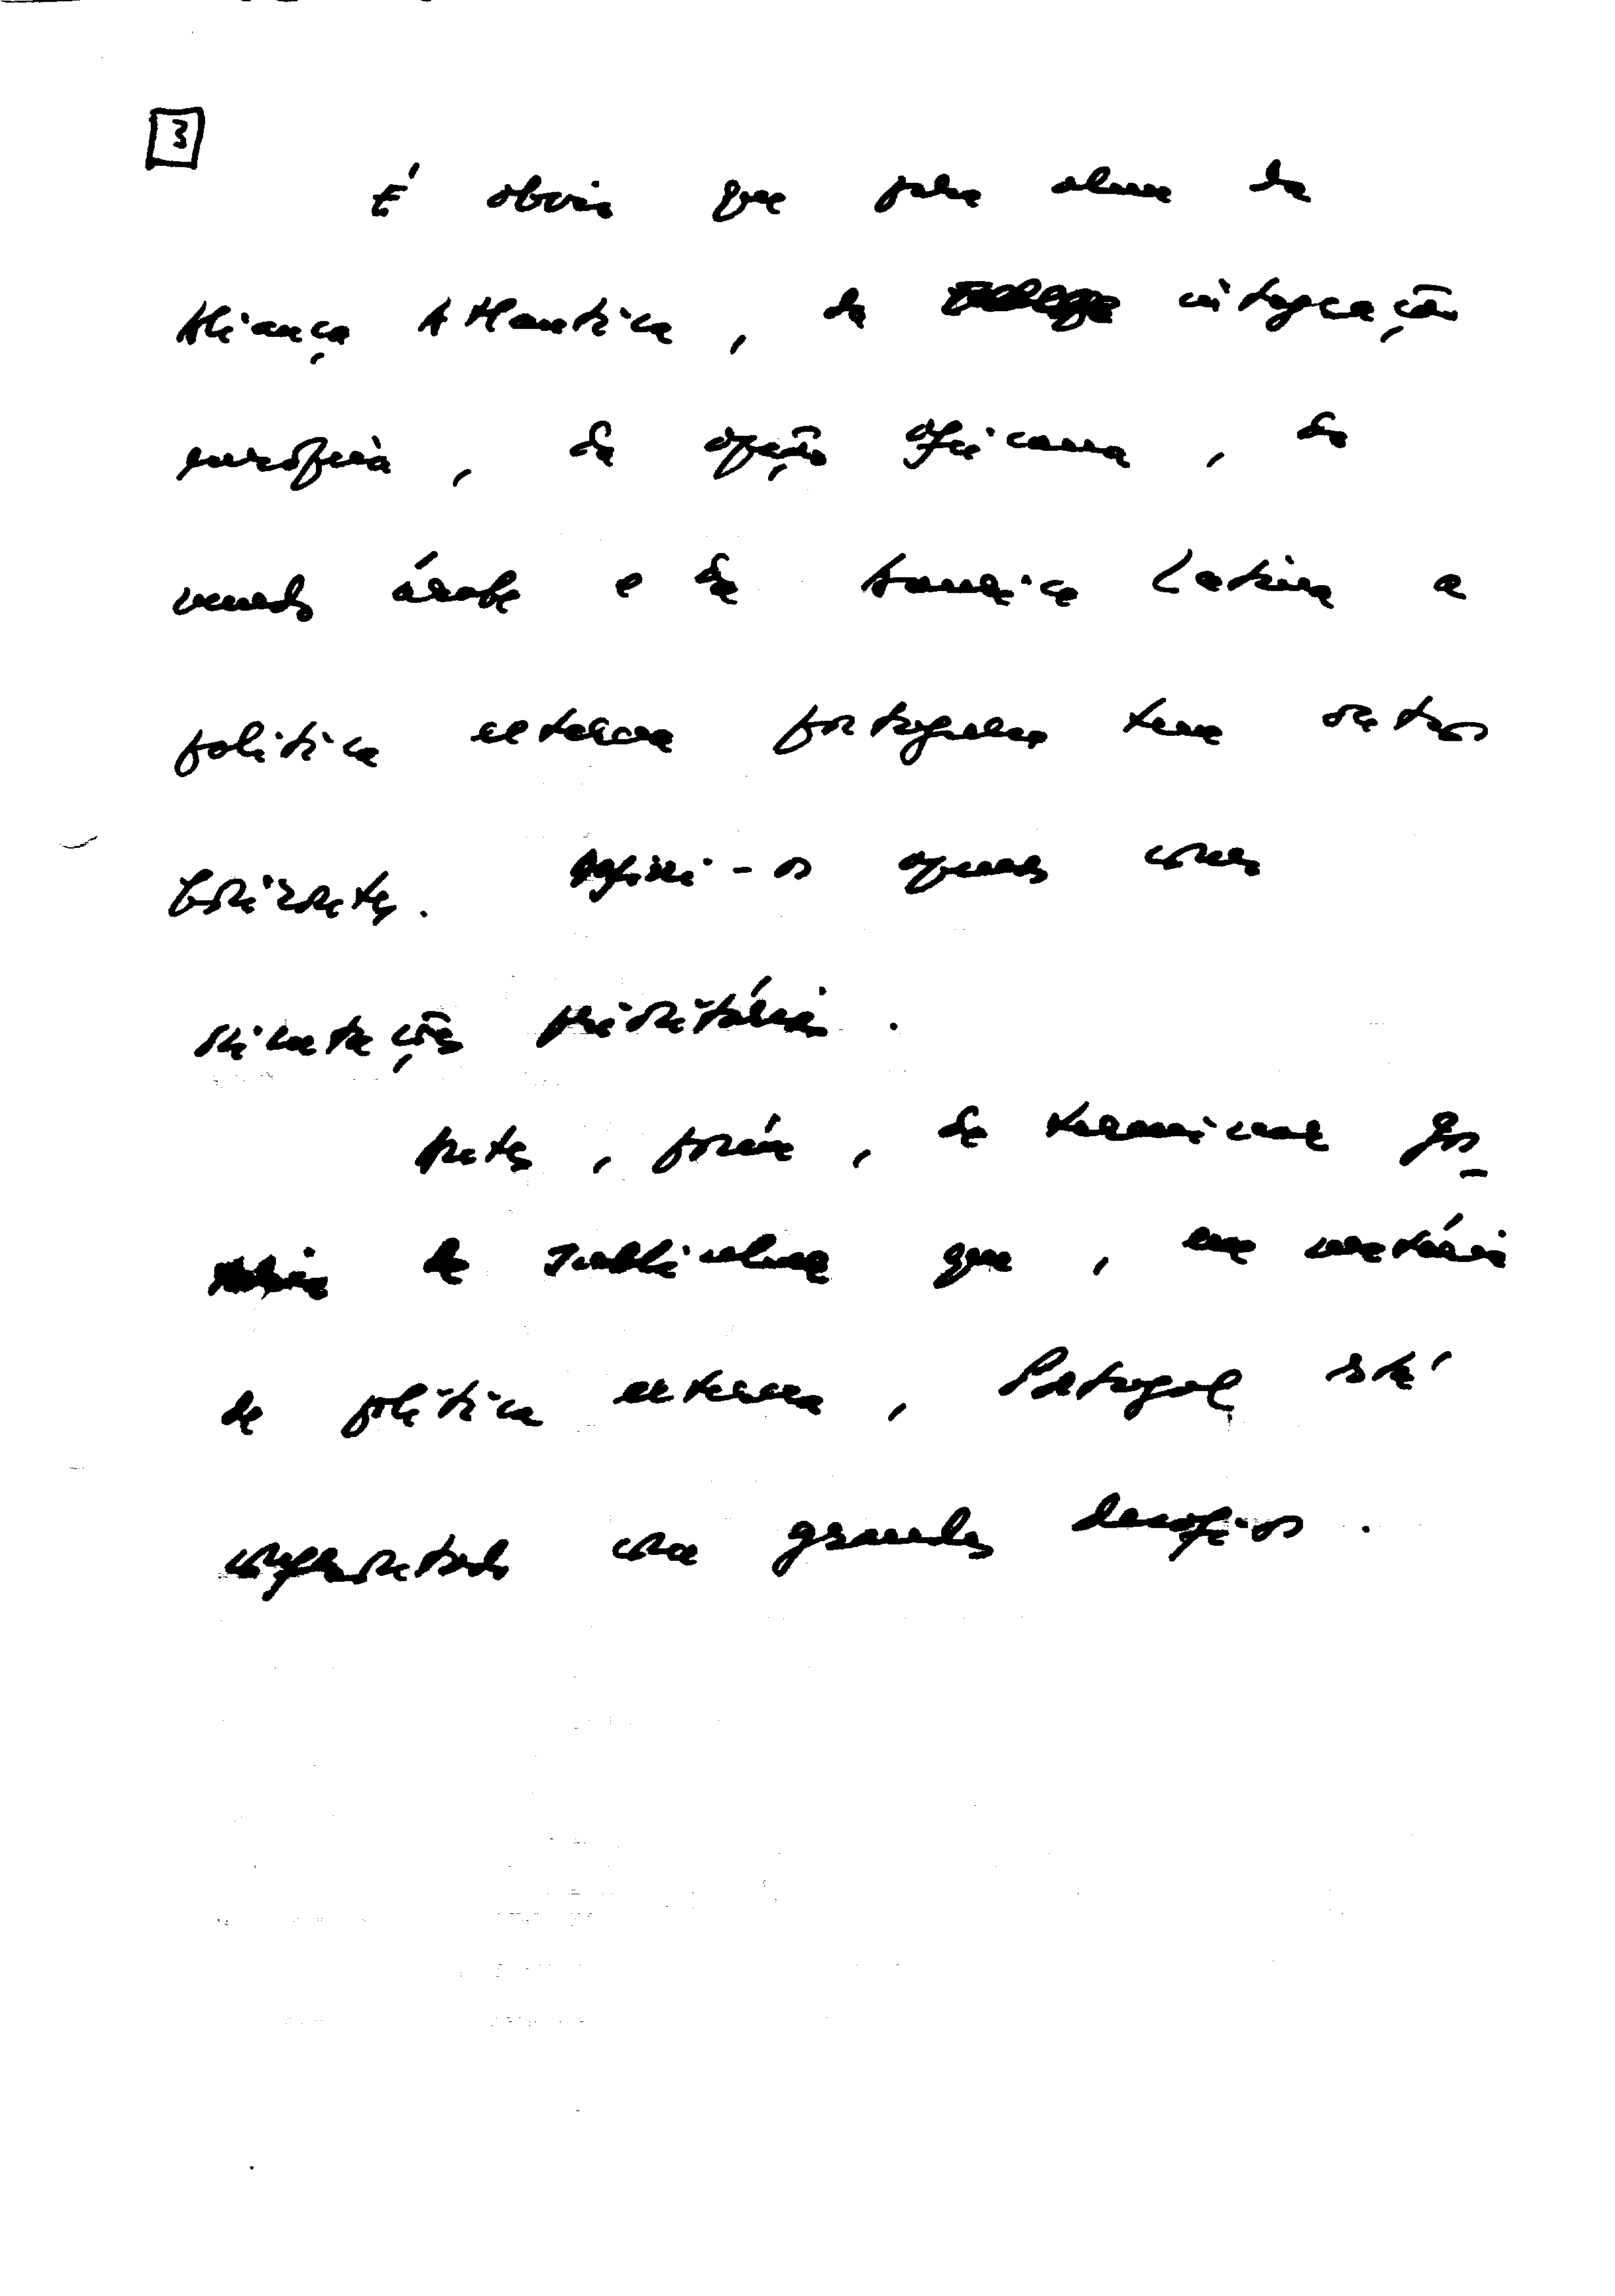 3
É obvio que para alem da
Aliança Atlantica, da integração
europeia, da opção africana, do
mundo árabe e da America Latina a
politica externa portuguesa tem outros
horizontes. Defini-os apenas como
orientações prioritárias.
Antes, porém, de terminar gos-
taria de sublinhar que, em matéria
de politica externa, Portugal está
confrontado com grandes desafios.